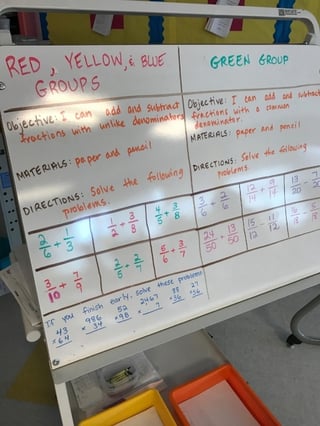 RED, YELLOW, & BLUE
GROUPS
Objective: I can add and subtract
fractions with unlike denominators
MATERIALS: paper and pencil
DIRECTIONS: Solve the following
problems.
2/6 + 1/3
1/2 + 3/8
4/5 + 3/8
3/10 + 7/9
2/5 + 2/7
5/6 + 3/7
If you finish early, solve these problems
43 × 64
986 × 34
52 × 98
2467 × 7
88 × 36
27 × 56
GREEN GROUP
Objective: I can add and subtract
fractions with a common
denominator.
MATERIALS: paper and pencil
DIRECTIONS: Solve the following
problems.
3/6 + 2/6
12/14 + 9/14
13/20
24/50 + 13/50
15/12 - 11/12